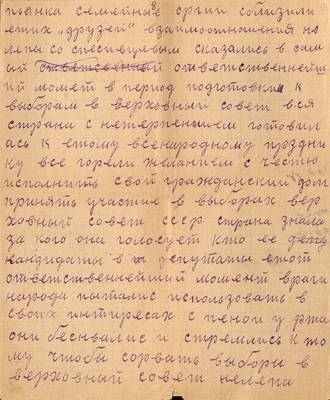 пьянка семейные оргии сблизили
етих „друзей" взаимоотношения но
лепа со спесивцевым сказались в сам
ый ответственнейш
ий момет в период подготовки к
выборам в верховный совет вся
страна с нетерпением готовил
ась к етому всенародному праздни
ку все горели жиланием с честью
исполнить свой гражданский долг
принять участие в выборах вер
ховный совет ссср страна знала
за кого она голосует кто ее
кандидаты в депутаты етот
ответственнейший момент враги
народа пытались использовать в
своих интиресах с пеной у рта
они бесновались и стремились к то
му чтобы сорвать выборы в
верховный совет нелепа